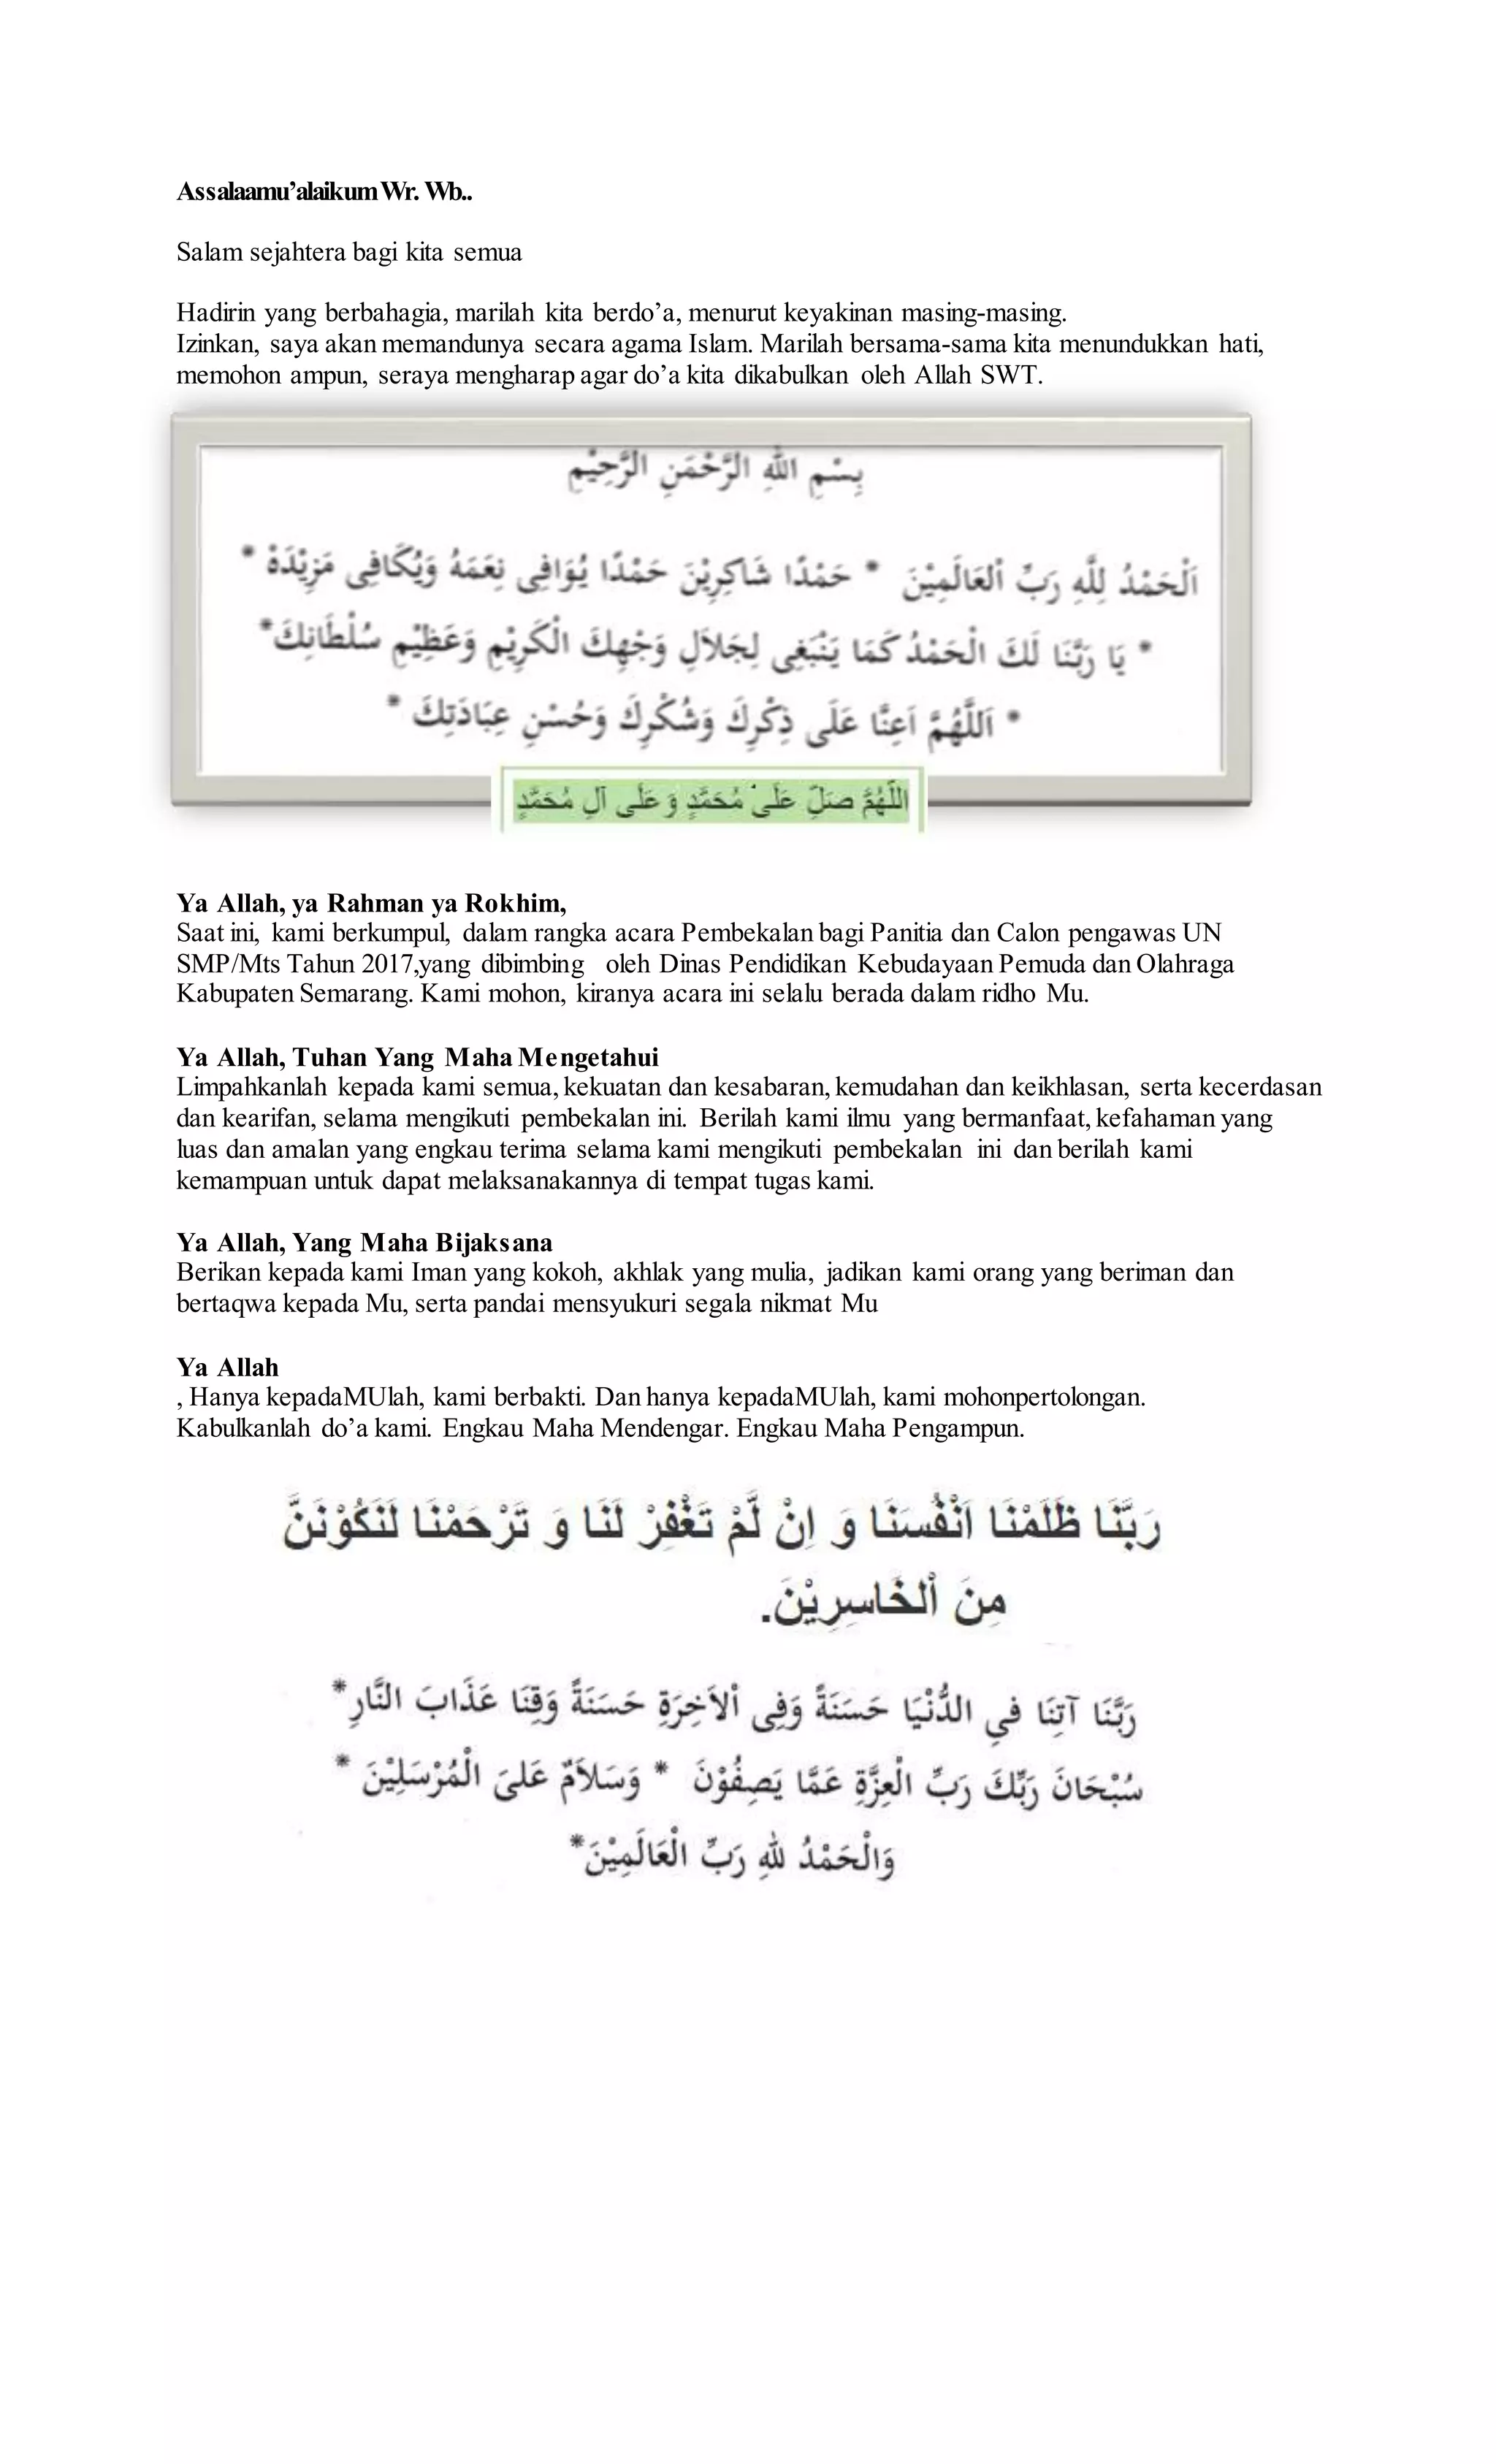 Assalaamu’alaikum Wr. Wb..
Salam sejahtera bagi kita semua
Hadirin yang berbahagia, marilah kita berdo’a, menurut keyakinan masing-masing.
Izinkan, saya akan memandunya secara agama Islam. Marilah bersama-sama kita menundukkan hati,
memohon ampun, seraya mengharap agar do’a kita dikabulkan oleh Allah SWT.
بِسْمِ اللهِ الرَّحْمَنِ الرَّحِيْمِ
اَلْحَمْدُ لِلَّهِ رَبِّ الْعَالَمِيْنَ * حَمْدًا شَاكِرِيْنَ حَمْدًا يُوَافِى نِعَمَهُ وَيُكَافِى مَزِيْدَهْ *
* يَا رَبَّنَا لَكَ الْحَمْدُ كَمَا يَنْبَغِى لِجَلاَلِ وَجْهِكَ الْكَرِيْمِ وَعَظِيْمِ سُلْطَانِكَ*
* اَللَّهُمَّ اَعِنَّا عَلَى ذِكْرِكَ وَشُكْرِكَ وَحُسْنِ عِبَادَتِكَ *
اللَّهُمَّ صَلِّ عَلَى مُحَمَّدٍ وَعَلَى آلِ مُحَمَّدٍ
Ya Allah, ya Rahman ya Rokhim,
Saat ini, kami berkumpul, dalam rangka acara Pembekalan bagi Panitia dan Calon pengawas UN
SMP/Mts Tahun 2017,yang dibimbing oleh Dinas Pendidikan Kebudayaan Pemuda dan Olahraga
Kabupaten Semarang. Kami mohon, kiranya acara ini selalu berada dalam ridho Mu.
Ya Allah, Tuhan Yang Maha Mengetahui
Limpahkanlah kepada kami semua, kekuatan dan kesabaran, kemudahan dan keikhlasan, serta kecerdasan
dan kearifan, selama mengikuti pembekalan ini. Berilah kami ilmu yang bermanfaat, kefahaman yang
luas dan amalan yang engkau terima selama kami mengikuti pembekalan ini dan berilah kami
kemampuan untuk dapat melaksanakannya di tempat tugas kami.
Ya Allah, Yang Maha Bijaksana
Berikan kepada kami Iman yang kokoh, akhlak yang mulia, jadikan kami orang yang beriman dan
bertaqwa kepada Mu, serta pandai mensyukuri segala nikmat Mu
Ya Allah
, Hanya kepadaMUlah, kami berbakti. Dan hanya kepadaMUlah, kami mohonpertolongan.
Kabulkanlah do’a kami. Engkau Maha Mendengar. Engkau Maha Pengampun.
رَبَّنَا ظَلَمْنَا اَنْفُسَنَا وَ اِنْ لَّمْ تَغْفِرْ لَنَا وَ تَرْحَمْنَا لَنَكُوْنَنَّ
مِنَ اْلخَاسِرِيْنَ.
رَبَّنَا آتِنَا فِي الدُّنْيَا حَسَنَةً وَفِى اْلآخِرَةِ حَسَنَةً وَقِنَا عَذَابَ النَّارِ*
سُبْحَانَ رَبِّكَ رَبِّ الْعِزَّةِ عَمَّا يَصِفُوْنَ * وَسَلاَمٌ عَلَىَ الْمُرْسَلِيْنَ *
وَالْحَمْدُ للهِ رَبِّ الْعَالَمِيْنَ*